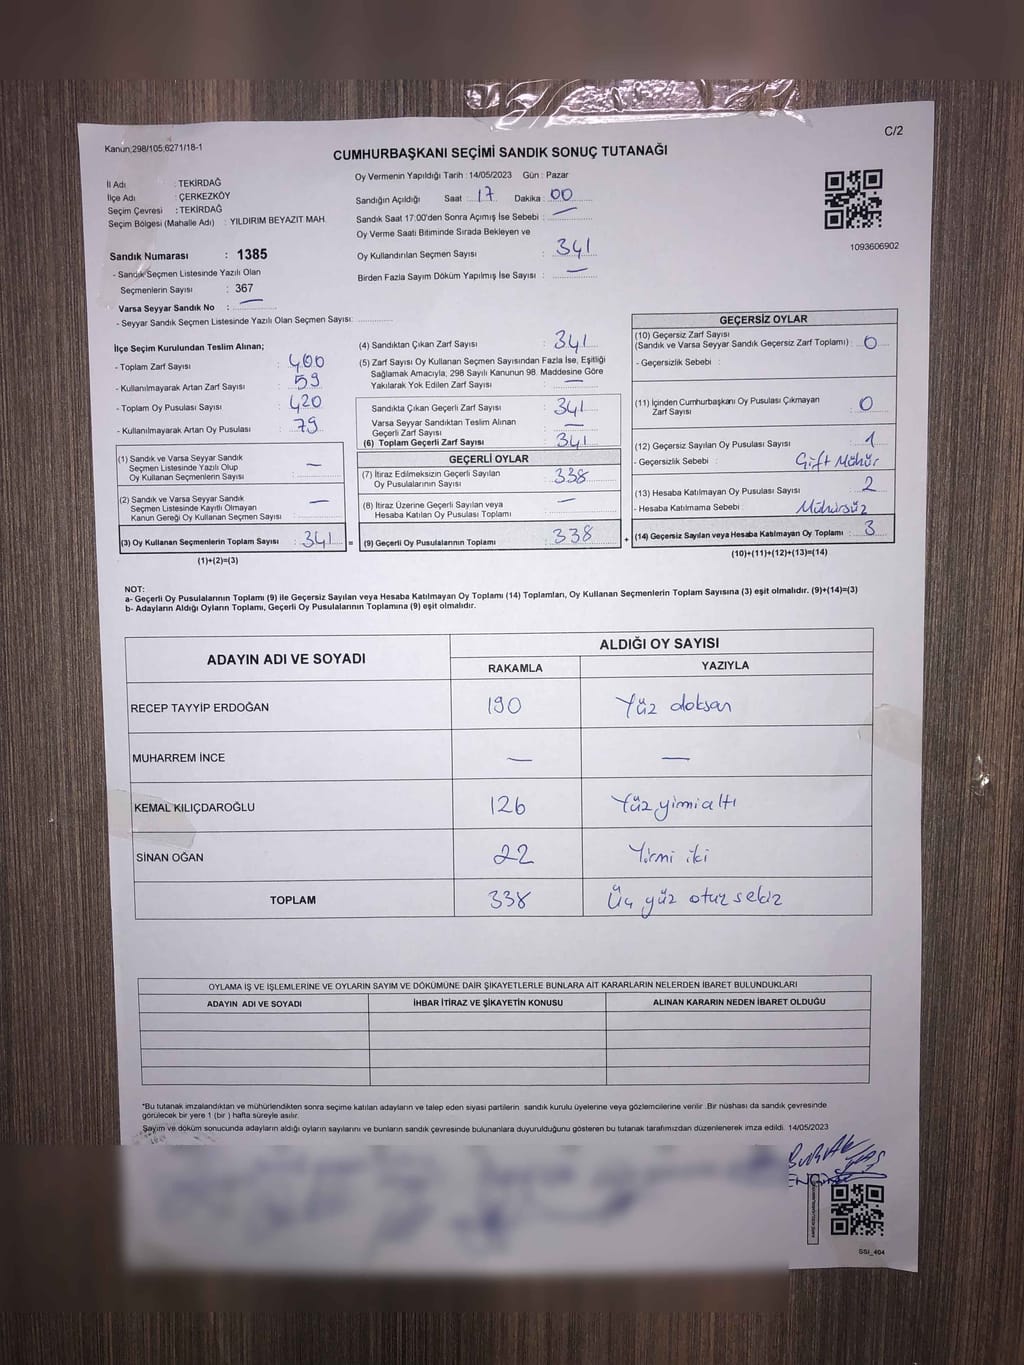 C/2
Kanun:298/105;6271/18-1
CUMHURBAŞKANI SEÇİMİ SANDIK SONUÇ TUTANAĞI
İl Adı : TEKİRDAĞ
İlçe Adı : ÇERKEZKÖY
Seçim Çevresi : TEKİRDAĞ
Seçim Bölgesi (Mahalle Adı) : YILDIRIM BEYAZIT MAH.
Oy Vermenin Yapıldığı Tarih : 14/05/2023 Gün : Pazar
Sandığın Açıldığı Saat : 17 Dakika : 00
Sandık Saat 17:00'den Sonra Açımış İse Sebebi : —
Oy Verme Saati Bitiminde Sırada Bekleyen ve
Oy Kullandırılan Seçmen Sayısı : 341
Birden Fazla Sayım Döküm Yapılmış İse Sayısı : —
1093606902
Sandık Numarası : 1385
- Sandık Seçmen Listesinde Yazılı Olan
Seçmenlerin Sayısı : 367
Varsa Seyyar Sandık No : —
- Seyyar Sandık Seçmen Listesinde Yazılı Olan Seçmen Sayısı:
İlçe Seçim Kurulundan Teslim Alınan;
- Toplam Zarf Sayısı : 400
- Kullanılmayarak Artan Zarf Sayısı : 59
- Toplam Oy Pusulası Sayısı : 420
- Kullanılmayarak Artan Oy Pusulası : 79
(1) Sandık ve Varsa Seyyar Sandık
Seçmen Listesinde Yazılı Olup
Oy Kullanan Seçmenlerin Sayısı : —
(2) Sandık ve Varsa Seyyar Sandık
Seçmen Listesinde Kayıtlı Olmayan
Kanun Gereği Oy Kullanan Seçmen Sayısı : —
(3) Oy Kullanan Seçmenlerin Toplam Sayısı : 341 =
(1)+(2)=(3)
(4) Sandıktan Çıkan Zarf Sayısı : 341
(5) Zarf Sayısı Oy Kullanan Seçmen Sayısından Fazla İse, Eşitliği
Sağlamak Amacıyla; 298 Sayılı Kanunun 98. Maddesine Göre
Yakılarak Yok Edilen Zarf Sayısı : —
Sandıkta Çıkan Geçerli Zarf Sayısı : 341
Varsa Seyyar Sandıktan Teslim Alınan
Geçerli Zarf Sayısı : —
(6) Toplam Geçerli Zarf Sayısı : 341
GEÇERLİ OYLAR
(7) İtiraz Edilmeksizin Geçerli Sayılan
Oy Pusulalarının Sayısı : 338
(8) İtiraz Üzerine Geçerli Sayılan veya
Hesaba Katılan Oy Pusulası Toplamı : —
(9) Geçerli Oy Pusulalarının Toplamı : 338 +
GEÇERSİZ OYLAR
(10) Geçersiz Zarf Sayısı
(Sandık ve Varsa Seyyar Sandık Geçersiz Zarf Toplamı) : 0
- Geçersizlik Sebebi :
(11) İçinden Cumhurbaşkanı Oy Pusulası Çıkmayan
Zarf Sayısı : 0
(12) Geçersiz Sayılan Oy Pusulası Sayısı : 1
- Geçersizlik Sebebi : Çift Mühür
(13) Hesaba Katılmayan Oy Pusulası Sayısı : 2
- Hesaba Katılmama Sebebi : Mühürsüz
(14) Geçersiz Sayılan veya Hesaba Katılmayan Oy Toplamı : 3
(10)+(11)+(12)+(13)=(14)
NOT:
a- Geçerli Oy Pusulalarının Toplamı (9) ile Geçersiz Sayılan veya Hesaba Katılmayan Oy Toplamı (14) Toplamları, Oy Kullanan Seçmenlerin Toplam Sayısına (3) eşit olmalıdır. (9)+(14)=(3)
b- Adayların Aldığı Oyların Toplamı, Geçerli Oy Pusulalarının Toplamına (9) eşit olmalıdır.
ADAYIN ADI VE SOYADI ALDIĞI OY SAYISI
RAKAMLA YAZIYLA
RECEP TAYYİP ERDOĞAN 190 Yüz doksan
MUHARREM İNCE — —
KEMAL KILIÇDAROĞLU 126 Yüz yimialtı
SİNAN OĞAN 22 Yirmi iki
TOPLAM 338 Üç yüz otuz sekiz
OYLAMA İŞ VE İŞLEMLERİNE VE OYLARIN SAYIM VE DÖKÜMÜNE DAİR ŞİKAYETLERLE BUNLARA AİT KARARLARIN NELERDEN İBARET BULUNDUKLARI
ADAYIN ADI VE SOYADI İHBAR İTİRAZ VE ŞİKAYETİN KONUSU ALINAN KARARIN NEDEN İBARET OLDUĞU
"Bu tutanak imzalandıktan ve mühürlendikten sonra seçime katılan adayların ve talep eden siyasi partilerin sandık kurulu üyelerine veya gözlemcilerine verilir .Bir nüshası da sandık çevresinde
görülecek bir yere 1 (bir ) hafta süreyle asılır.
Sayım ve döküm sonucunda adayların aldığı oyların sayılarını ve bunların sandık çevresinde bulunanlara duyurulduğunu gösteren bu tutanak tarafımızdan düzenlenerek imza edildi. 14/05/2023
BURAK
SSI_404